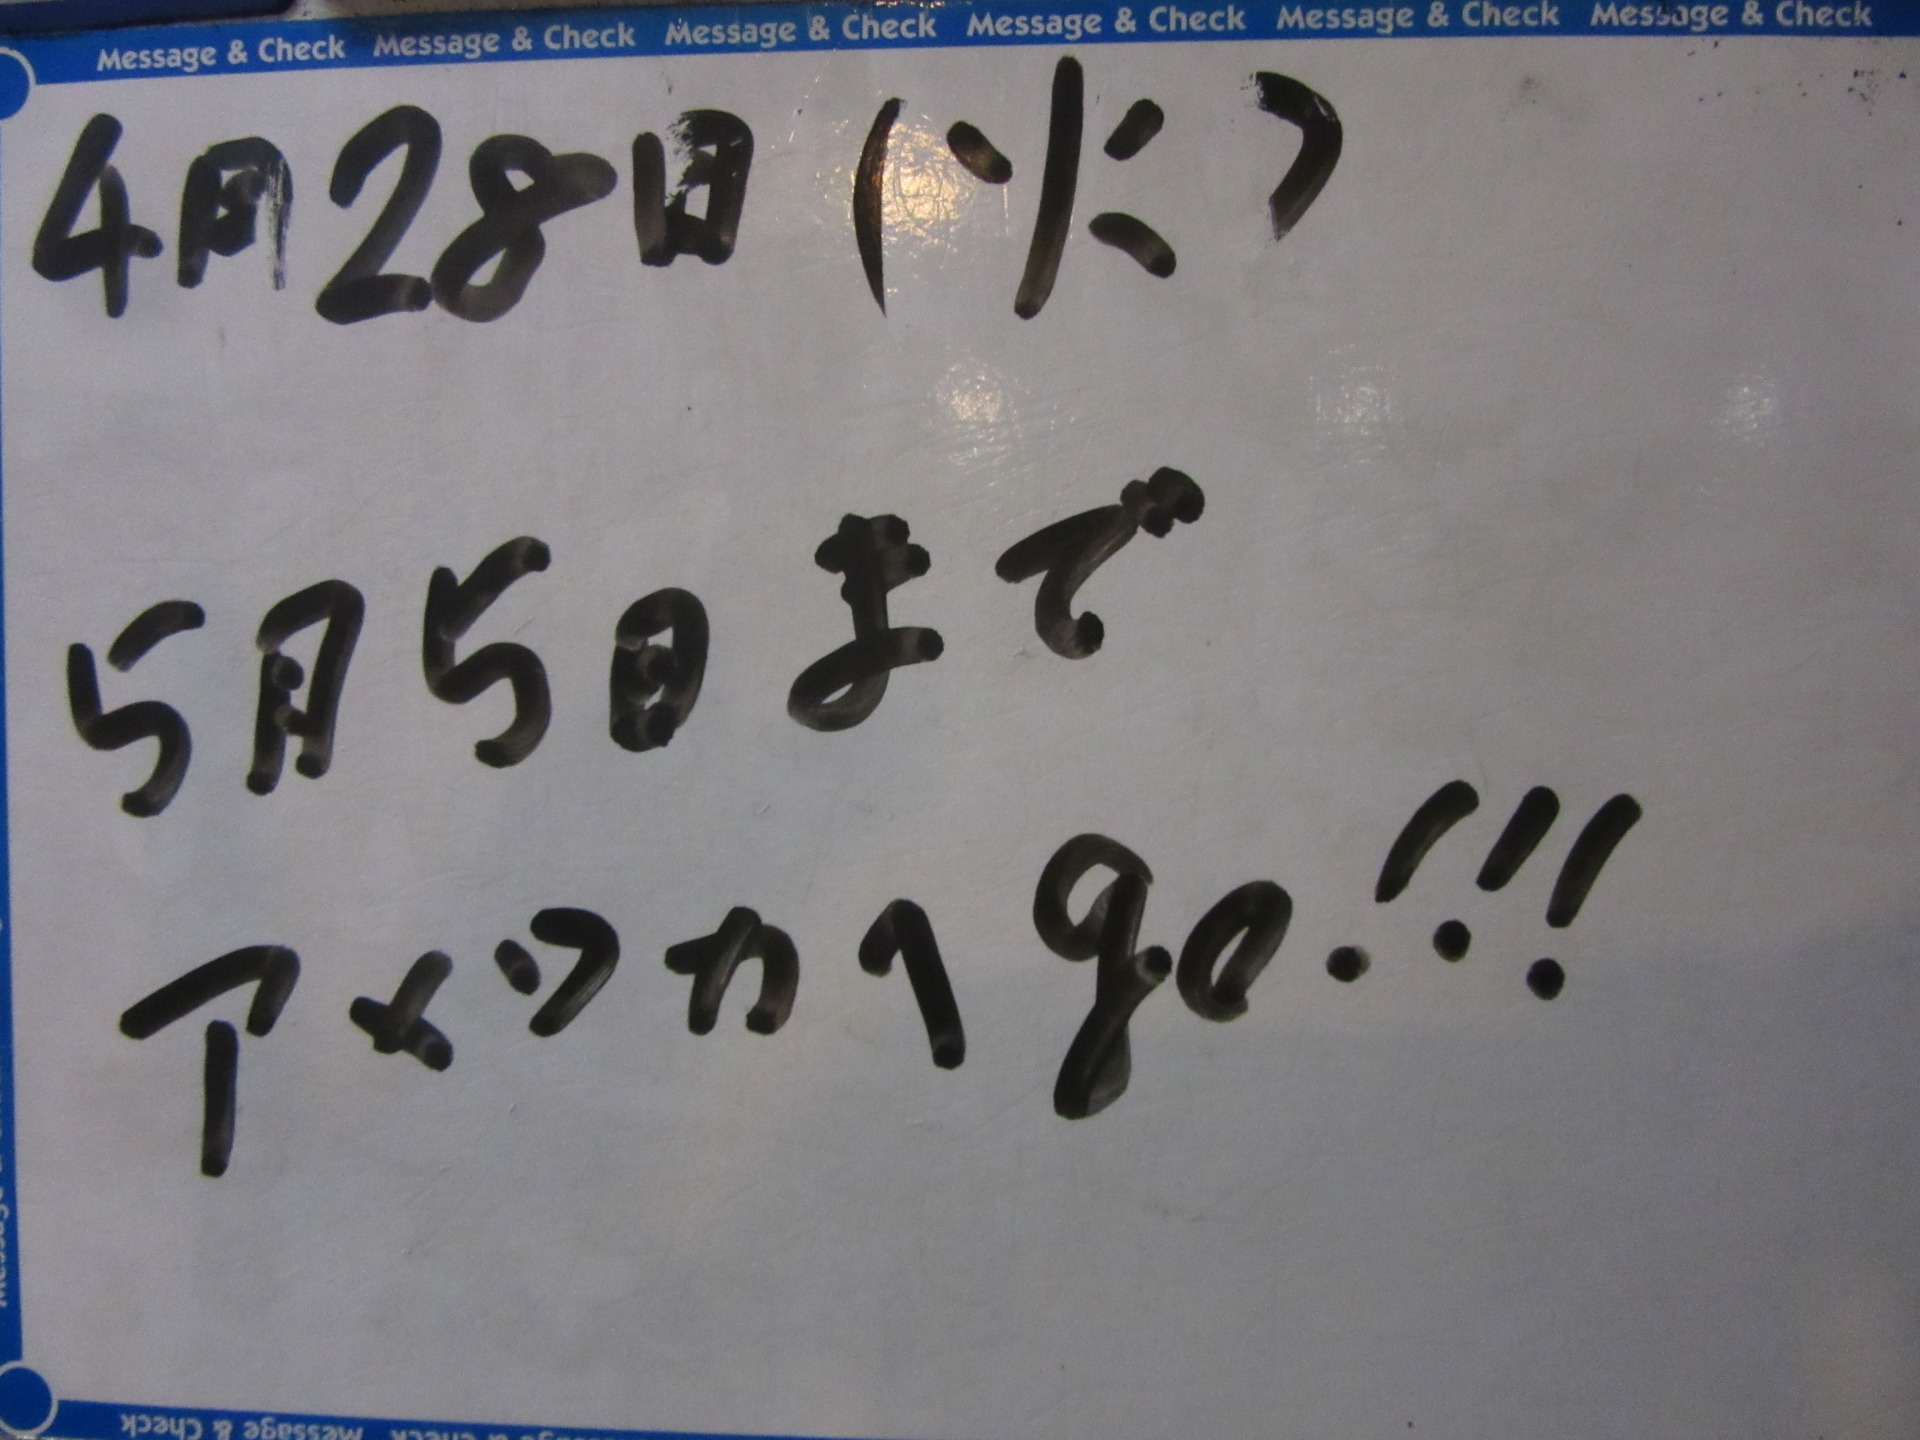 Message & Check Message & Check Message & Check Message & Check Message & Check Message & Check
4月28日(火)
5月5日まで
アメリカへgo!!!
Message & Check
Message & Check